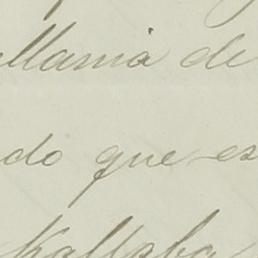 llamia de
do que es
hallaba